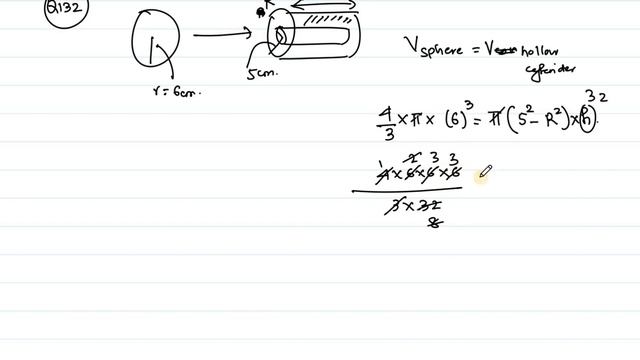 Q132
R
5cm.
r = 6cm.
V sphere = V hollow
cylinder
4/3 × π × (6)³ = π(5² - R²) × h 32
1 2 3 3
4 × 6 × 6 × 6
3 × 32
8